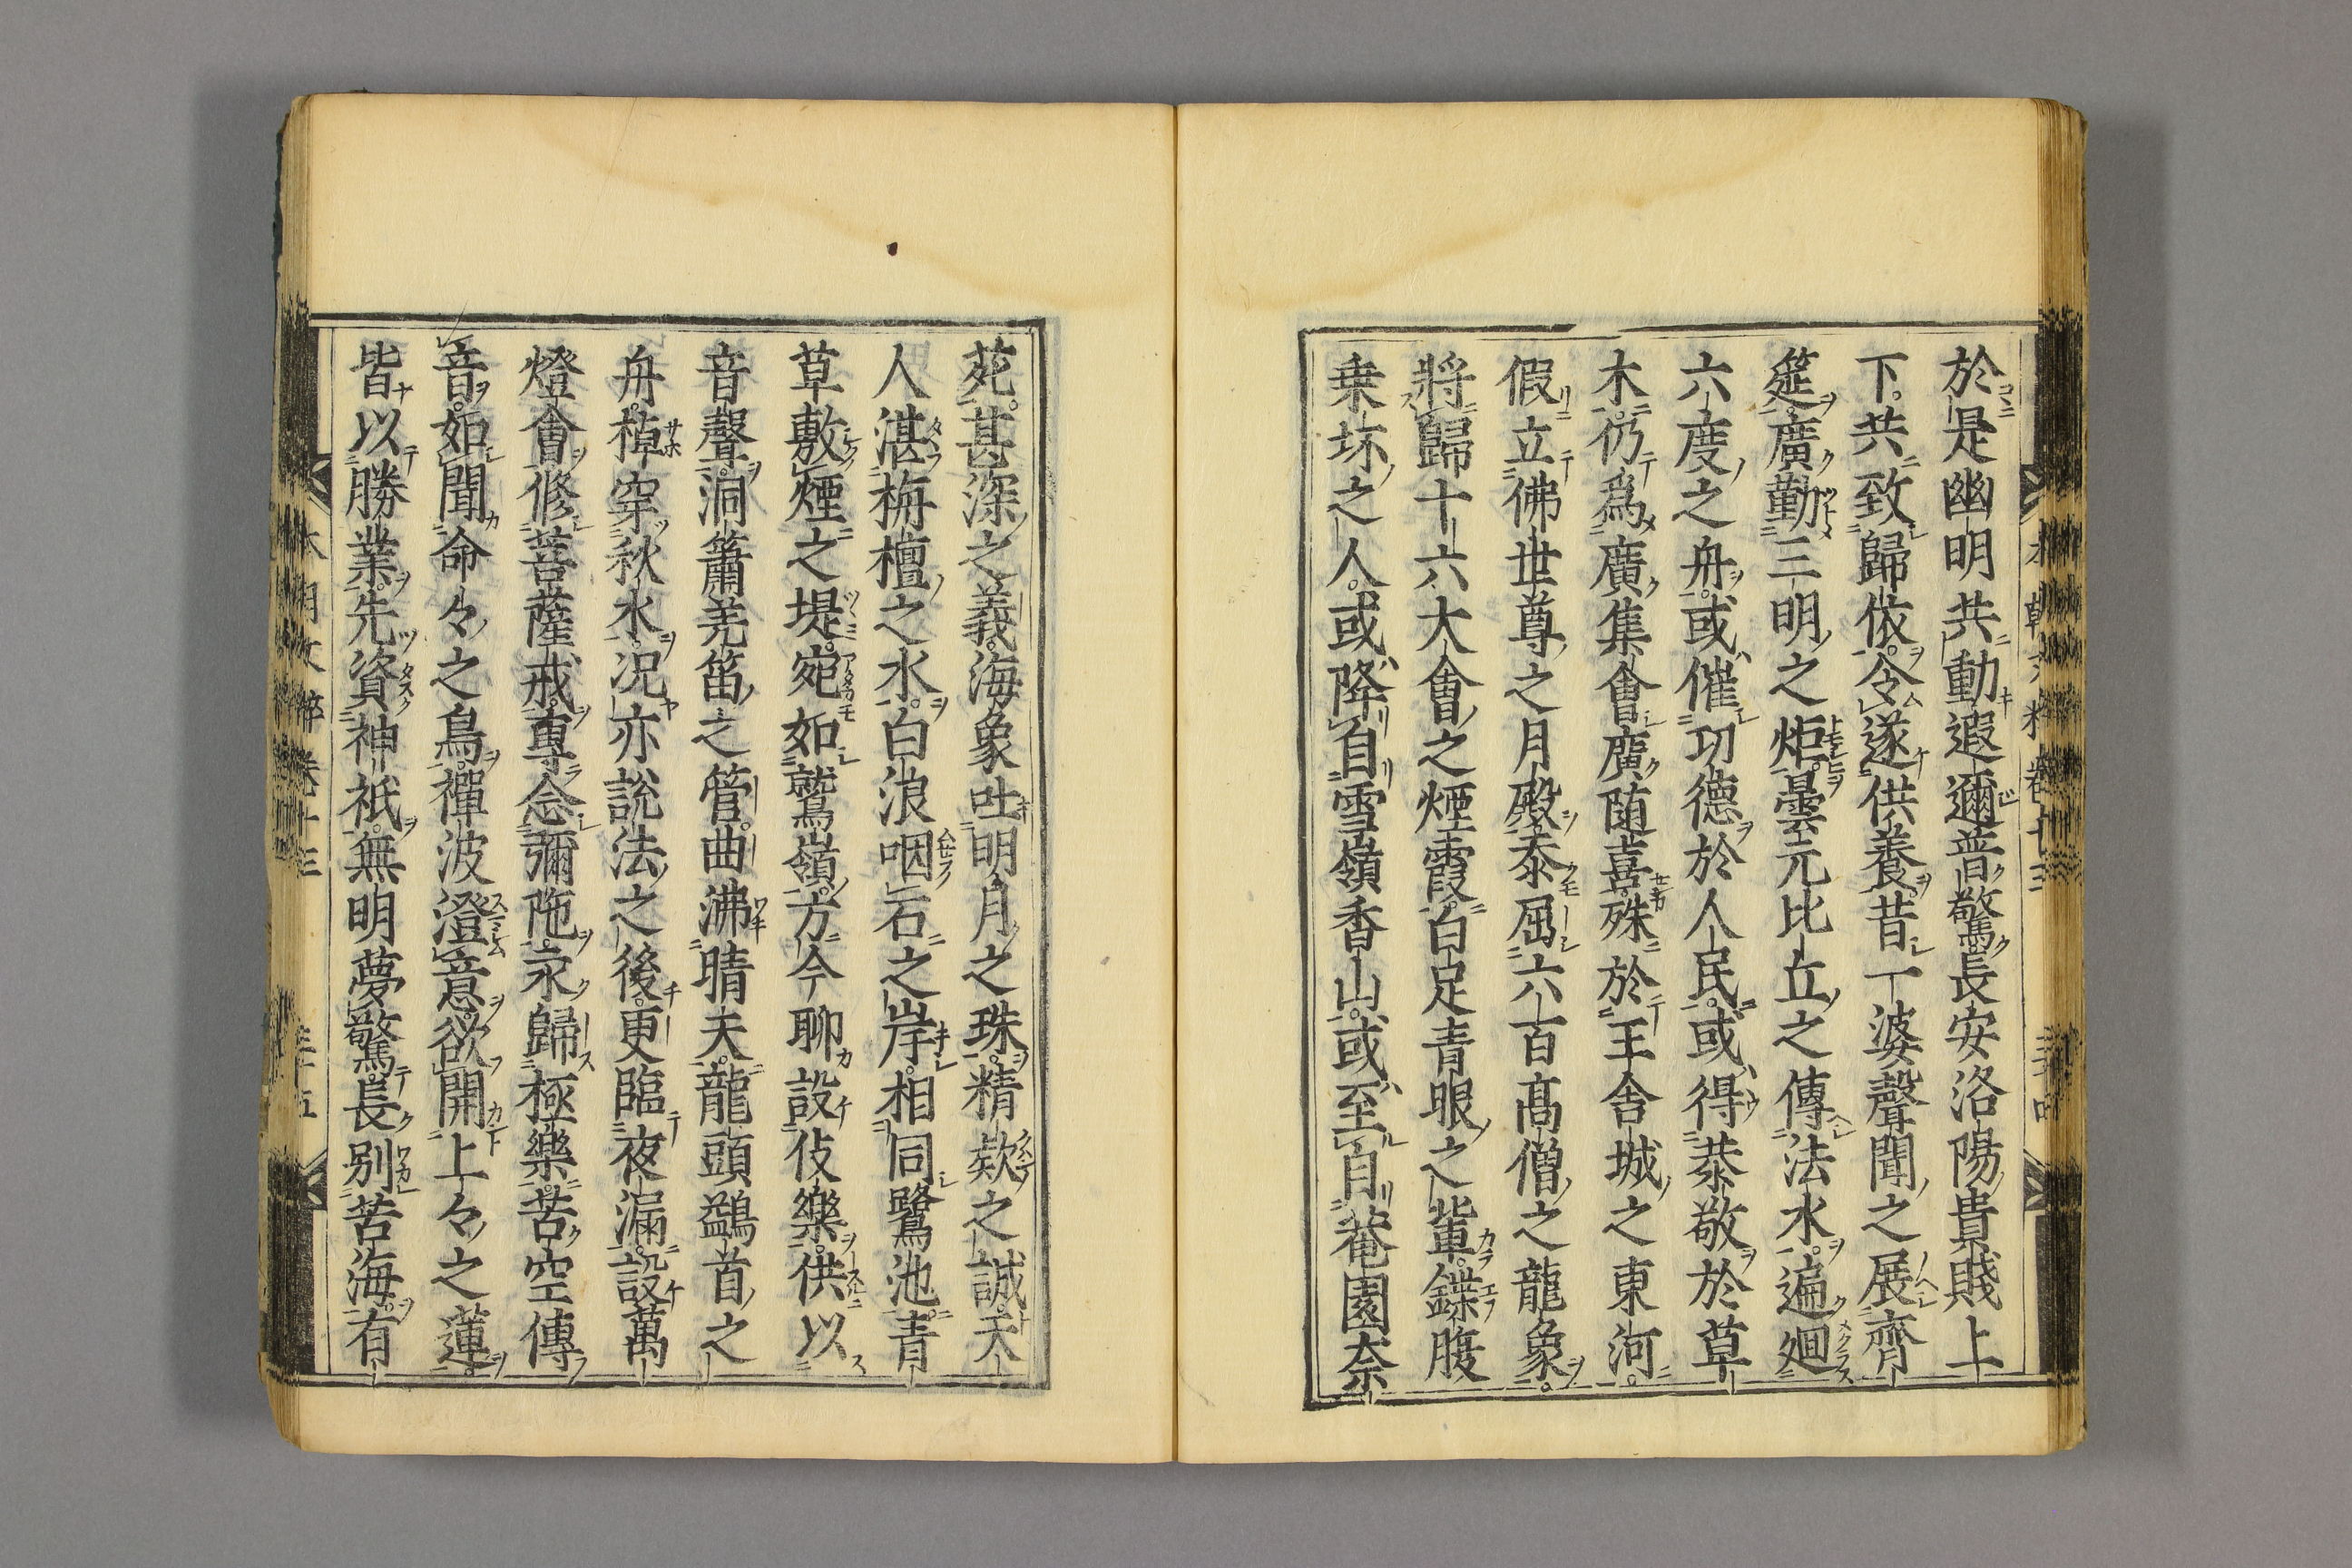 於是幽明共動遐邇普驚長安洛陽貴賤上
下共致歸依令遂供養昔丁婆聲聞之展齊
筵廣勤三明之炬曇元比丘之傳法水遍廻
六度之舟或催功德於人民或得恭敬於草
木仍爲廣集會廣随喜殊於王舍城之東河
假立佛世尊之月殿忝屈六百髙僧之龍象
將歸十六大會之煙霞白足青眼之軰鍱腹
乗坏之人或降自雪嶺香山或至自菴園奈
苑甚深之義海象吐明月之珠精欵之誠天
人湛栴檀之水白浪咽石之岸相同鷺池青
草敷煙之堤宛如鷲嶺方今聊設伎樂供以
音聲洞簫羌笛之管曲沸晴天龍頭鷁首之
舟棹穿秋水况亦説法之後更臨夜漏設萬
燈會修菩薩戒專念彌陁永歸極樂苦空傳
音如聞命々之鳥禪波澄意欲開上々之蓮
皆以勝業先資神祇無明夢驚長別苦海有
本朝文粹卷十三
三十五